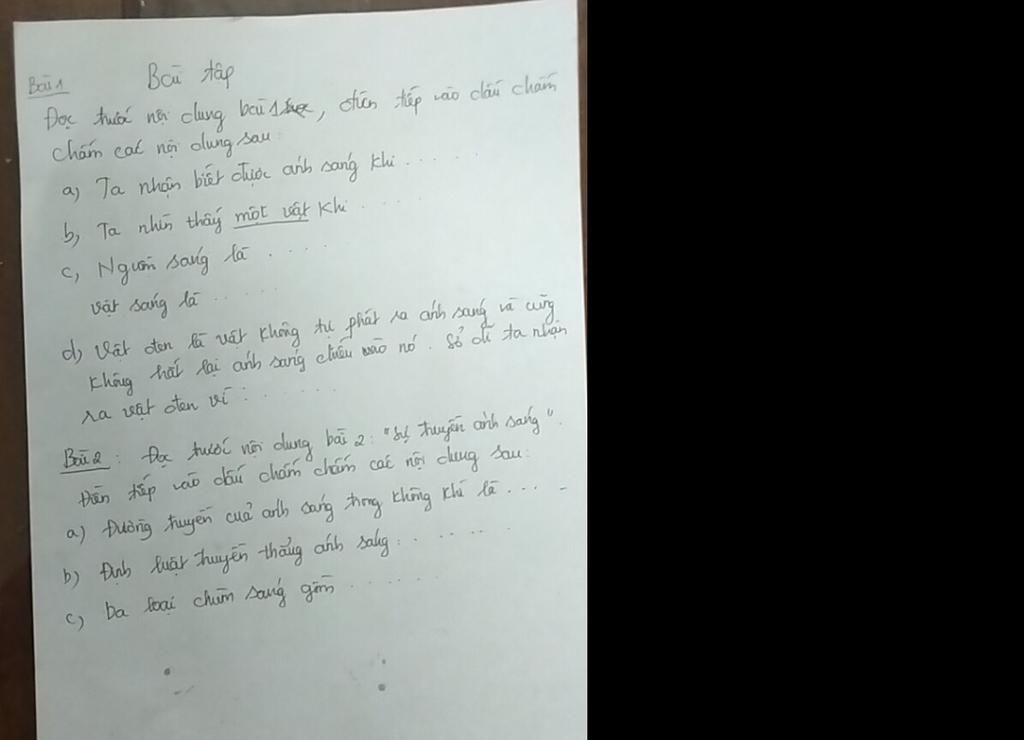 Bài tập
Bài 1
Đọc trước nội dung bài 1, điền tiếp vào dấu chấm
chấm các nội dung sau:
a) Ta nhận biết được ánh sáng khi . . . . .
b) Ta nhìn thấy một vật khi . . . . .
c) Nguồn sáng là . . . .
vật sáng là . . . . .
d) Vật đen là vật không tự phát ra ánh sáng và cũng
không hắt lại ánh sáng chiếu vào nó. Sở dĩ ta nhận
ra vật đen vì : . . . . .
Bài 2 : Đọc trước nội dung bài 2: "Sự truyền ánh sáng".
Điền tiếp vào dấu chấm chấm các nội dung sau:
a) Đường truyền của ánh sáng trong không khí là . . . .
b) Định luật truyền thẳng ánh sáng : . . . . .
c) ba loại chùm sáng gồm . . . . . .